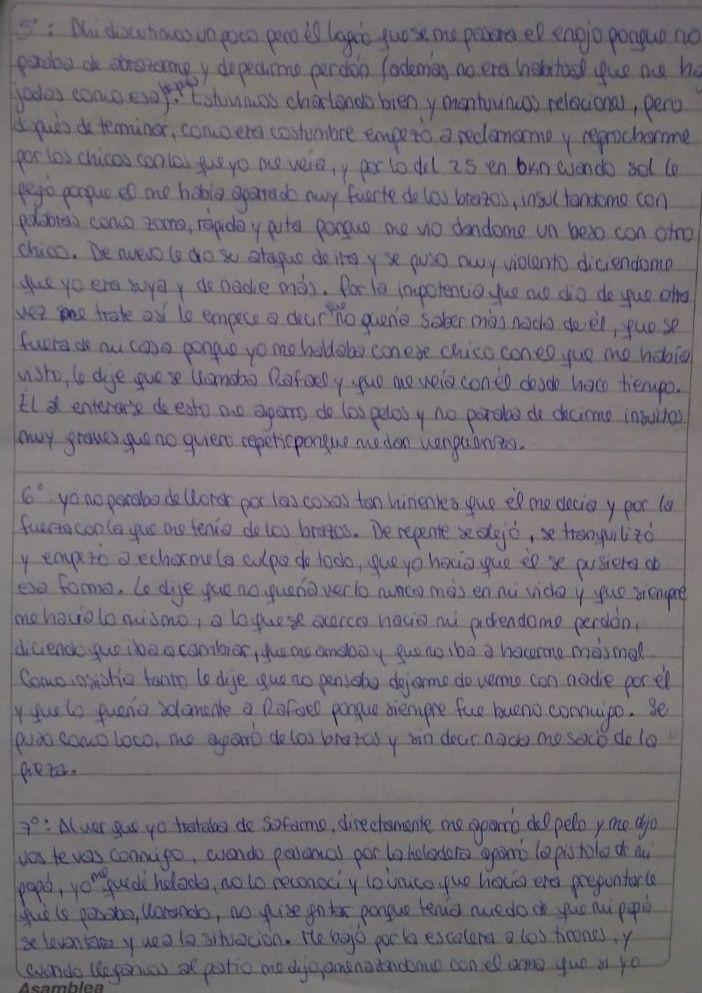 5°: Ahi discutimos un poco pero él logró que se me pasara el enojo porque no
paraba de abrazarme y de pedirme perdón (además no era habitual que me ha
Estuvimos charlando bien y mantuvimos relaciones, pero
después de terminar, como era costumbre empezó a reclamarme y reprocharme
por los chicos con los que yo me veía, y por lo del 25 en bkn cuando sol le
pegó porque él me había agarrado muy fuerte de los brazos, insultandome con
palabras como zorra, rápida y puta porque me vio dandome un beso con otro
chico. De nuevo le dio su ataque de ira y se puso muy violento diciendome
que yo era suya y de nadie más. Por la impotencia que me dio de que otra
vez me trate así le empece a decir que no quería saber más nada de él, que se
fuera de mi casa porque yo me hablaba con ese chico con el que me había
visto, le dije que se llamaba Rafael y que me veía con él desde hace tiempo.
Él al enterarse de esto me agarró de los pelos y no paraba de decirme insultos
muy graves que no quiero repetir porque me dan verguenza.
6°: yo no paraba de llorar por las cosas tan hirientes que él me decía y por la
fuerza con la que me tenía de los brazos. De repente se alejó, se tranquilizó
y empezó a echarme la culpa de todo, que yo hacía que él se pusiera de
esa forma. Le dije que no quería verlo nunca más en mi vida y que siempre
me hacía lo mismo, a lo que se acerco hacia mi pidendome perdón,
diciendo que iba a cambiar, que me amaba y que no iba a hacerme más mal.
Como insistía tanto le dije que no pensaba dejarme de verme con nadie por él
y que lo quería solamente a Rafael porque siempre fue bueno conmigo. Se
puso como loco, me agarró de los brazos y sin decir nada me sacó de la
pieza.
7°: Al ver que yo trataba de safarme, directamente me agarró del pelo y me dijo
vos te vas conmigo, cuando pasamos por la heladera agarró la pistola de mi
papá, yo me quedé helada, no lo reconocí y lo único que hacía era preguntarle
qué le pasaba, llorando, no quise gritar porque tenía miedo de que mi papá
se levantara y vea la situación. Me bajó por la escalera a los tirones, y
cuando llegamos al patio me dijo, amenazandome con el arma que si yo
Asamblea